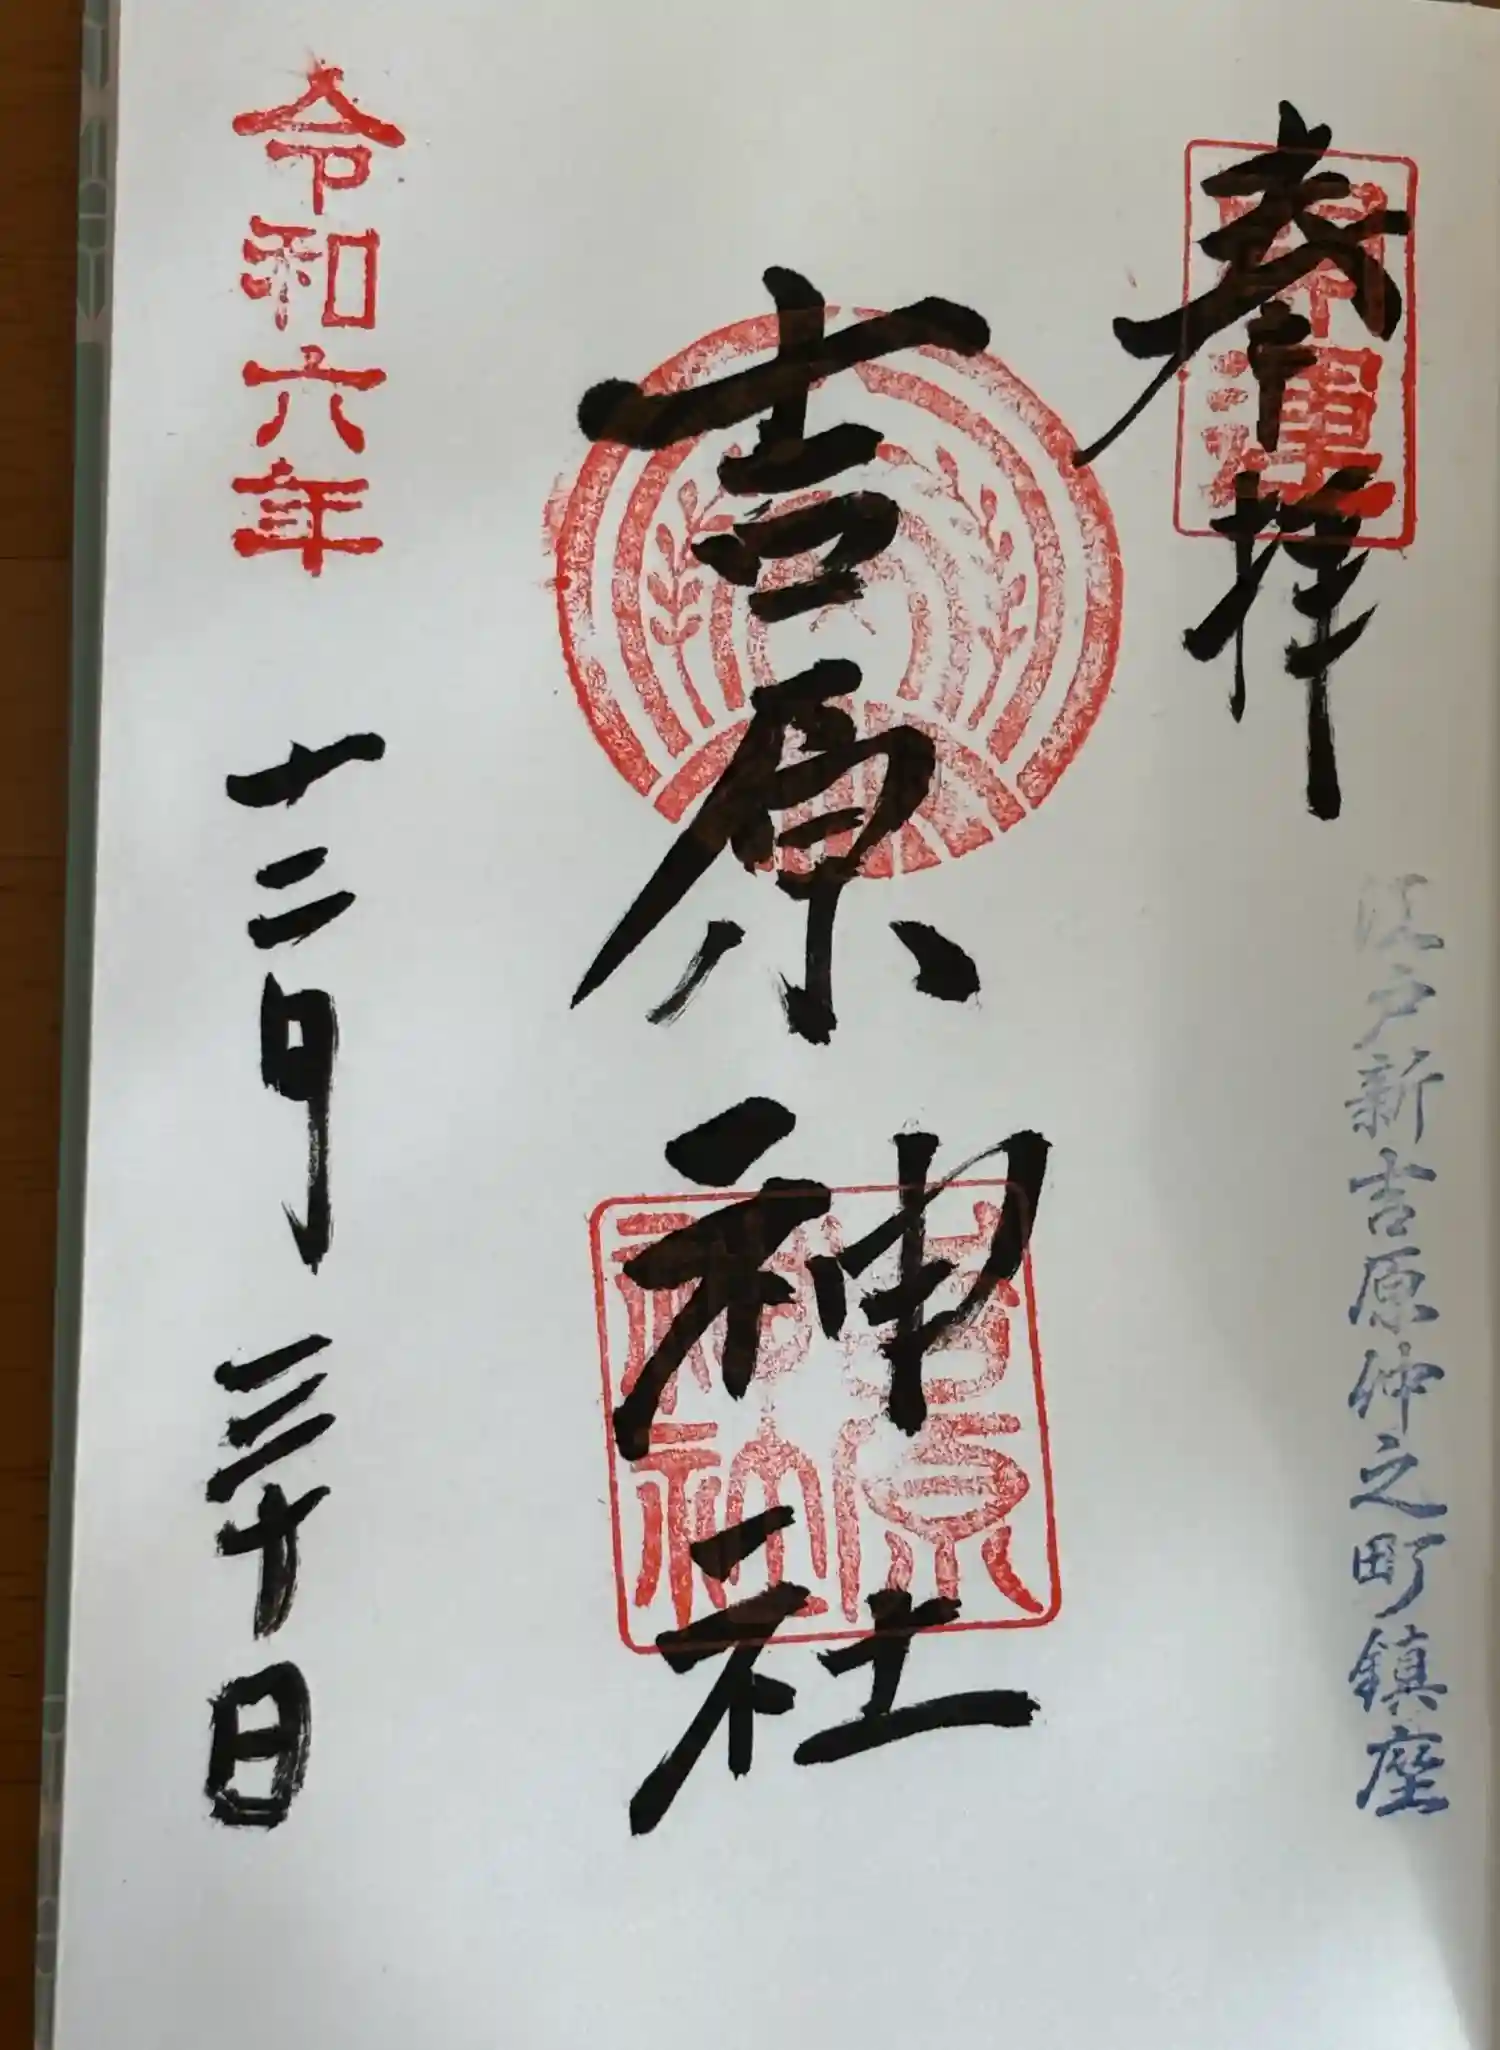 奉拝
開運
江戸新吉原仲之町鎮座
吉原神社
吉原
神社
令和六年
十二月三十日